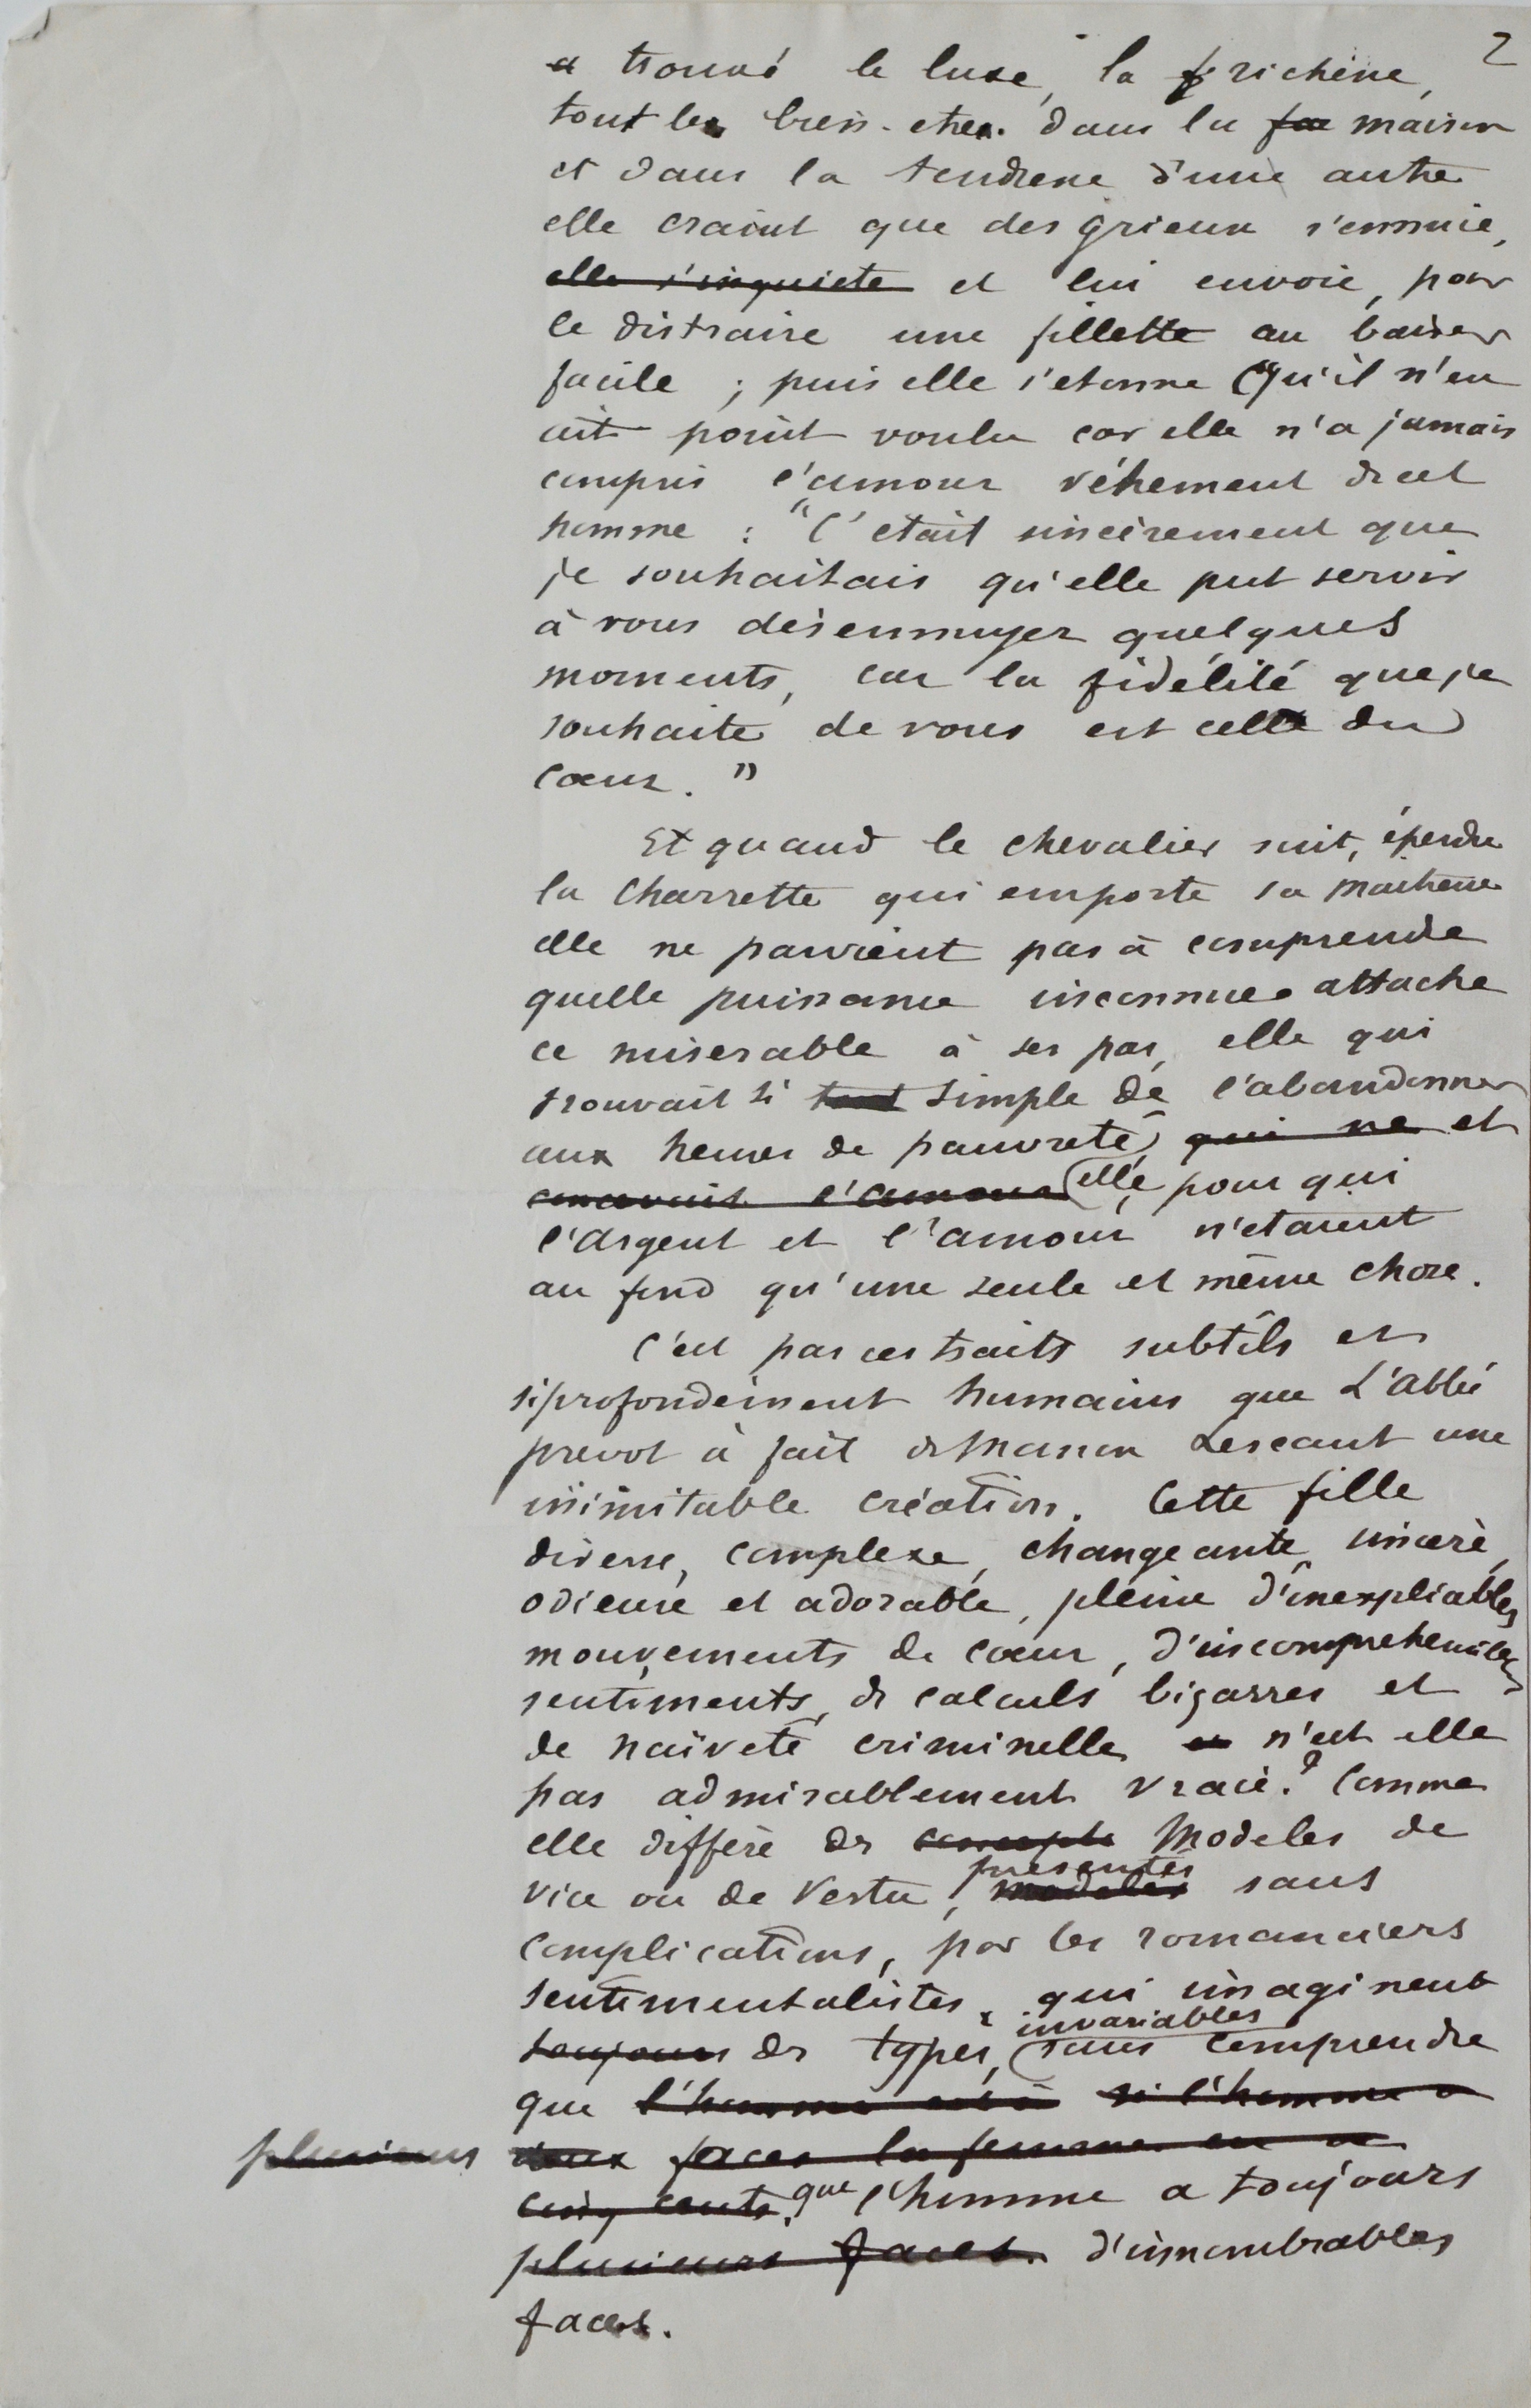 2
a trouvé le luxe, la richesse,
tout le bien-etre. dans la maison
et dans la tendresse d'une autre
elle craint que des grieux s'ennuie,
elle s'inquiete et lui envoie, pour
le distraire une fillette au baiser
facile ; puis elle s'etonne qu'il n'en
ait point voulu car elle n'a jamais
compris l'amour véhement de cet
homme : "C'etait sincèrement que
je souhaitais qu'elle put servir
à vous désennuyer quelques
moments, car la fidélité que je
souhaite de vous est celle du
coeur. "
Et quand le chevalier suit, éperdu
la Charrette qui emporte sa maitresse
elle ne parvient pas à comprendre
quelle puissance inconnue attache
ce miserable à ses pas, elle qui
trouvait si tout simple de l'abandonner
aux heures de pauvreté, qui ne et
concevait l'amour elle, pour qui
l'argent et l'amour n'etaient
au fond qu'une seule et même chose.
C'est par ces traits subtils et
si profondément humains que L'abbé
prevot à fait de Manon Lescaut une
inimitable création. Cette fille
diverse, complexe, changeante, sincère,
odieuse et adorable, pleine d'inexpliables
mouvements de coeur, d'incomprehensibles
sentiments, de calculs bizarres et
de naïveté criminelle n'est elle
pas admirablement vraie ? Comme
elle diffère des Modeles de
presentés
vice ou de Vertu, modeles sans
complications, par les romanciers
sentimentalistes, qui imaginent
invariables
toujours des types, sans comprendre
que l'homme est à si l'homme a
plusieurs deux faces la femme en a
cinq cents. que l'homme a toujours
plusieurs faces. d'innombrables
faces.